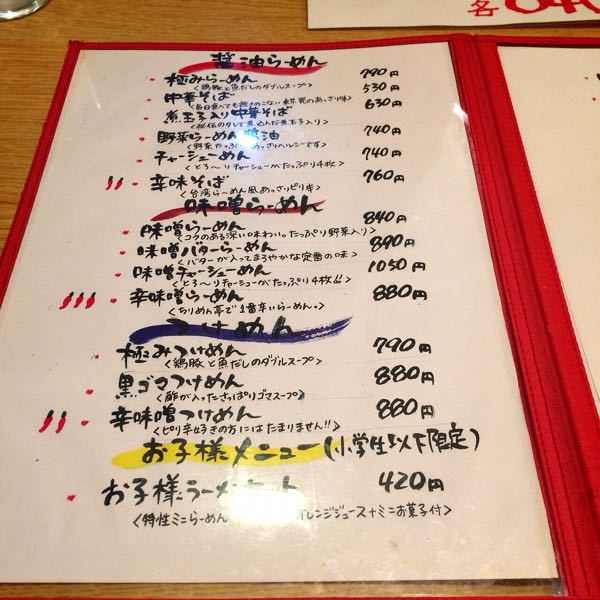 各
醤油らーめん
極みらーめん 790円
<鶏豚と魚だしのダブルスープ>
中華そば 530円
<毎日食べても飽きのこない 昔のあっさり味>
煮玉子入り中華そば 630円
<秘伝のタレで煮込んだ煮玉子入り>
野菜らーめん醤油 740円
<野菜たっぷり あっさりヘルシーです>
チャーシューめん 740円
<とろ〜りチャーシューがたっぷり4枚>
辛味そば 760円
<台湾らーめん風あっさりピリ辛>
味噌らーめん
味噌らーめん 840円
<コクのある深い味わい。たっぷり野菜入り>
味噌バターらーめん 890円
<バターが入ってまろやかな定番の味>
味噌チャーシューめん 1050円
<とろ〜りチャーシューがたっぷり4枚!!>
辛味噌らーめん 880円
<ちりめん亭で1番辛いらーめん。>
つけめん
極みつけめん 790円
<鶏豚と魚だしのダブルスープ>
黒ゴマつけめん 880円
<酢が入ったさっぱりゴマスープ>
辛味噌つけめん 880円
<ピリ辛好きの方にはたまりません!!>
お子様メニュー(小学生以下限定)
お子様ラーメンセット 420円
<特性ミニらーめん オレンジジュース+ミニお菓子付>